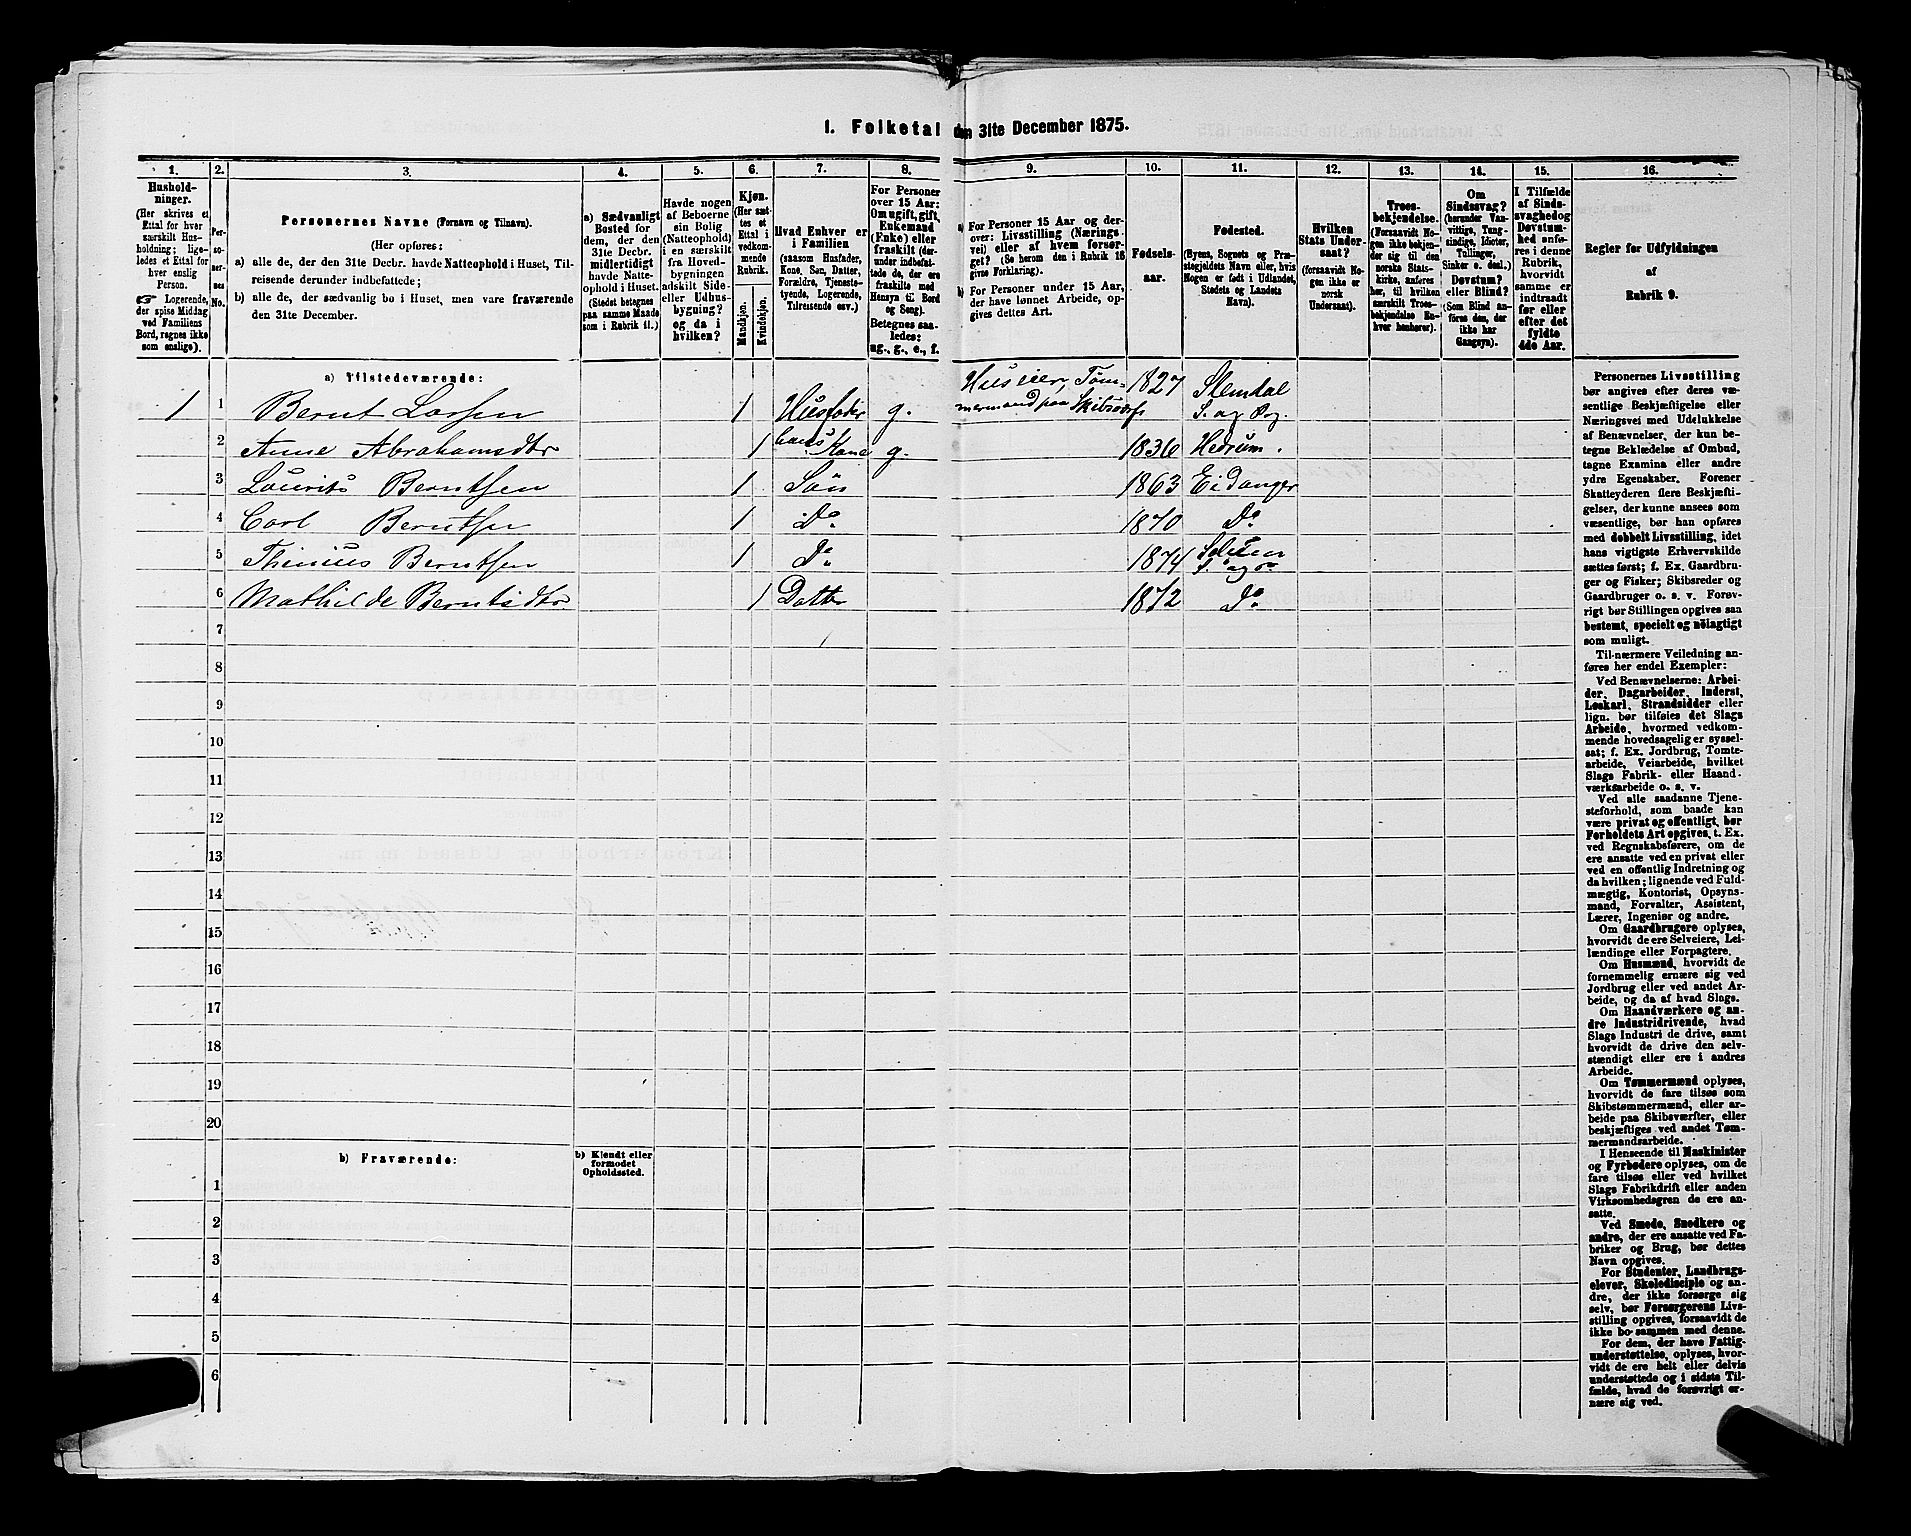 1. Folketal den 31te December 1875.
1. 2. 3. 4. 5. 6. 7. 8. 9. 10. 11. 12. 13. 14. 15. 16.
Hushold-
ninger.
(Her skrives et
Ettal for hver
særskilt Hus-
holdning; lige-
ledes et Ettal for
hver enslig
Person.
☞ Logerende,
der spise Middag
ved Familiens
Bord, regnes ikke
som enslige).
Per-
so-
ner-
nes
No.
Personernes Navne (Fornavn og Tilnavn).
(Her opføres:
a) alle de, der den 31te Decbr. havde Natteophold i Huset, Til-
reisende derunder indbefattede;
b) alle de, der sædvanlig bo i Huset, men vare fraværende
den 31te December.
a) Sædvanligt
Bosted for
dem, der den
31te Decbr.
midlertidigt
havde Natte-
ophold i Huset.
(Stedet betegnes
paa samme Maade
som i Rubrik 11.)
Havde nogen
af Beboerne
sin Bolig
(Natteophold)
i en særskilt
fra Hoved-
bygningen
adskilt Side-
eller Udhus-
bygning?
og da i
hvilken?
Kjøn.
(Her sæt-
tes et
Ettal i
vedkom-
mende
Rubrik.
Mandkjøn.
Kvindekjøn.
Hvad Enhver er
i Familien
(saasom Husfader,
Kone, Søn, Datter,
Forældre, Tjeneste-
tyende, Logerende,
Tilreisende osv.)
For Personer
over 15 Aar:
Om ugift, gift,
Enkemand
(Enke) eller
fraskilt (der-
under indbefat-
tede de, der ere
fraskilte med
Hensyn til Bord
og Seng).
Betegnes saa-
ledes:
ug., g., e., f.
a) For Personer 15 Aar og der-
over: Livsstilling (Nærings-
vei) eller af hvem forsør-
get? (Se herom den i Rubrik 16
givne Forklaring).
b) For Personer under 15 Aar,
der have lønnet Arbeide, op-
gives dettes Art.
Fødsels-
aar.
Fødested.
(Byens, Sognets og Præ-
stegjeldets Navn eller, hvis
Nogen er født i Udlandet,
Stedets og Landets
Navn).
Hvilken
Stats Under-
saat?
(forsaavidt No-
gen ikke er
norsk
Undersaat).
Troes-
bekjendelse.
(Forsaavidt No-
gen ikke bekjen-
der sig til den
norske Stats-
kirke, anføres
her, til hvilken
særskilt Troes-
bekjendelse En-
hver henhører).
Om
Sindssvag?
(herunder Van-
vittige, Tung-
sindige, Idioter,
Tullinger,
Sinker o. desl.)
Døvstum?
eller Blind?
(Som Blind an-
føres den, der
ikke har
Gangsyn).
I Tilfælde
af Sinds-
svaghed og
Døvstum-
hed anfø-
res i denne
Rubrik,
hvorvidt
samme er
indtraadt
før eller
efter det
fyldte
4de Aar.
Regler for Udfyldningen
af
Rubrik 9.
a) Tilstedeværende:
1 1 Bernt Larsen 1 Husfader g. Huseier, Tøm-
mermand paa Skibsværft 1827 Slemdal
S. og Prg.
2 Anne Abrahamsdtr 1 hans Kone g. 1836 Hedrum.
3 Laurits Berntsen 1 Søn 1863 Eidanger
4 Carl Berntsen 1 Do 1870 Do
5 Thinius Berntsen 1 Do 1874 Solum
S. og Pr
6 Mathilde Berntsdtr 1 Datter 1872 Do
7
8
9
10
11
12
13
14
15
16
17
18
19
20
b) Fraværende:
b) Kjendt eller
formodet
Opholdssted.
1
2
3
4
5
6
Personernes Livsstilling
bør angives efter deres væ-
sentlige Beskjæftigelse eller
Næringsvei med Udelukkelse
af Benævnelser, der kun be-
tegne Beklædelse af Ombud,
tagne Examina eller andre
ydre Egenskaber. Forener
Skatteyderen flere Beskjæfti-
gelser, der kunne ansees som
væsentlige, bør han opføres
med dobbelt Livsstilling, idet
hans vigtigste Erhvervskilde
sættes først; f. Ex. Gaardbru-
ger og Fisker; Skibsreder og
Gaardbruger o. s. v. Forøv-
rigt bør Stillingen opgives saa
bestemt, specielt og nöiagtigt
som muligt.
Til nærmere Veiledning an-
føres her endel Exempler:
Ved Benævnelserne: Arbei-
der, Dagarbeider, Inderst,
Løskarl, Strandsidder eller
lign. bør tilføies det Slags
Arbeide, hvormed vedkom-
mende hovedsagelig er syssel-
sat; f. Ex. Jordbrug, Tomte-
arbeide, Veiarbeide, hvilket
Slags Fabrik- eller Haand-
værksarbeide o. s. v.
Ved alle saadanne Tjene-
steforhold, som baade kan
være privat og offentligt, bør
Forholdets Art opgives, t. Ex.
ved Regnskabsførere, om de
ere ansatte ved en privat eller
ved en offentlig Indretning og
da hvilken; lignende ved Fuld-
mægtig, Kontorist, Opsyns-
mand, Forvalter, Assistent,
Lærer, Ingeniør og andre.
Om Gaardbrugere oplyses,
hvorvidt de ere Selveiere, Lei-
lændinge eller Forpagtere.
Om Husmænd, hvorvidt de
fornemmelig ernære sig ved
Jordbrug eller ved andet Ar-
beide, og da af hvad Slags.
Om Haandværkere og an-
dre Industridrivende, hvad
Slags Industri de drive, samt
hvorvidt de drive den selv-
stændigt eller ere i andres
Arbeide.
Om Tømmermænd oplyses,
hvorvidt de fare tilsøs som
Skibstømmermænd, eller ar-
beide paa Skibsværfter, eller
beskjæftiges ved andet Tøm-
mermandsarbeide.
I Henseende til Maskinister
og Fyrbødere oplyses, om de
fare tilsøs eller ved hvilket
Slags Fabrikdrift eller anden
Virksomhedsgren de ere an-
satte.
Ved Smede, Snedkere og
andre, der ere ansatte ved Fa-
briker og Brug, bør dettes
Navn opgives.
For Studenter, Landbrugs-
elever, Skoledisciple og an-
dre, der ikke forsørge sig
selv, bør Forsørgerens Livs-
stilling opgives, forsaavidt de
ikke bo sammen med denne.
For dem, der have Fattig-
understøttelse, oplyses, hvor-
vidt de ere helt eller delvis
understøttede og i sidste Til-
fælde, hvad de forøvrigt er-
nære sig ved.